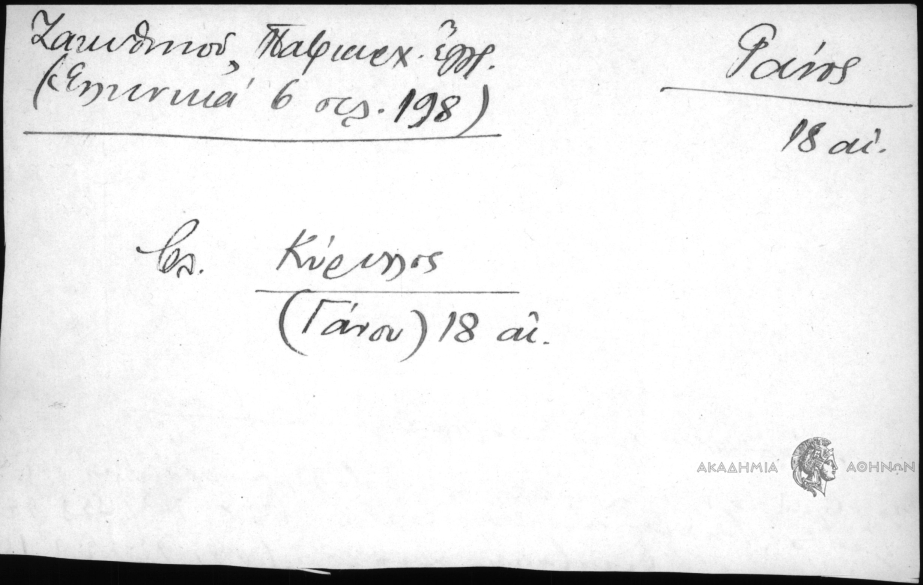 Ζακυθηνού, Πατριαρχ. έγγρ.
(Ελληνικά 6 σελ. 198)
Γάνος
18 αἰ.
βλ. Κύριλλος
(Γάνου) 18 αἰ.
ΑΚΑΔΗΜΙΑ ΑΘΗΝΩΝ